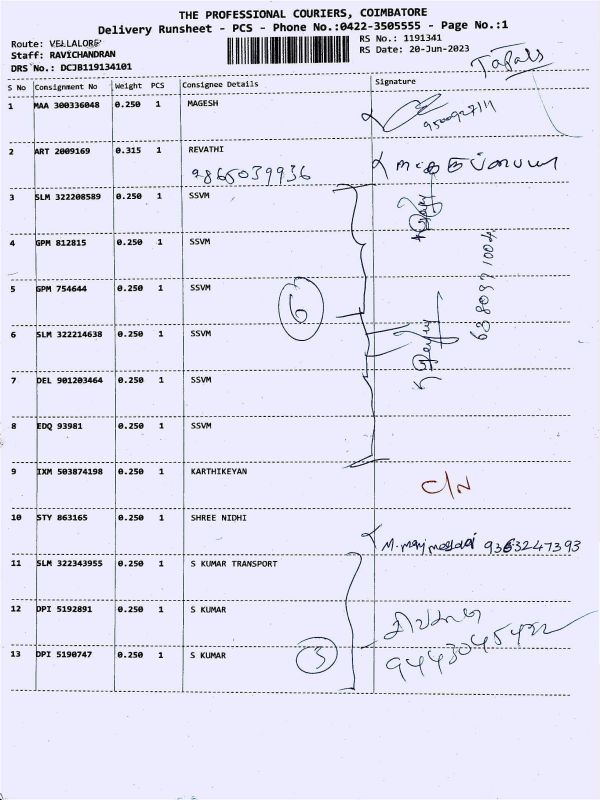 THE PROFESSIONAL COURIERS, COIMBATORE
Delivery Runsheet - PCS - Phone No.:0422-3505555 - Page No.:1
Route: VELLALORE
RS No.: 1191341
Staff: RAVICHANDRAN
RS Date: 20-Jun-2023
DRS No.: DCJB119134101
S No Consignment No Weight PCS Consignee Details Signature
1 MAA 300336048 0.250 1 MAGESH
2 ART 2009169 0.315 1 REVATHI
9865039936
3 SLM 322208589 0.250 1 SSVM
4 GPM 812815 0.250 1 SSVM
5 GPM 754644 0.250 1 SSVM
6
6 SLM 322214638 0.250 1 SSVM
7 DEL 901203464 0.250 1 SSVM
8 EDQ 93981 0.250 1 SSVM
9 IXM 503874198 0.250 1 KARTHIKEYAN
C/N
10 STY 863165 0.250 1 SHREE NIDHI
9363247393
11 SLM 322343955 0.250 1 S KUMAR TRANSPORT
12 DPI 5192891 0.250 1 S KUMAR
13 DPI 5190747 0.250 1 S KUMAR
3